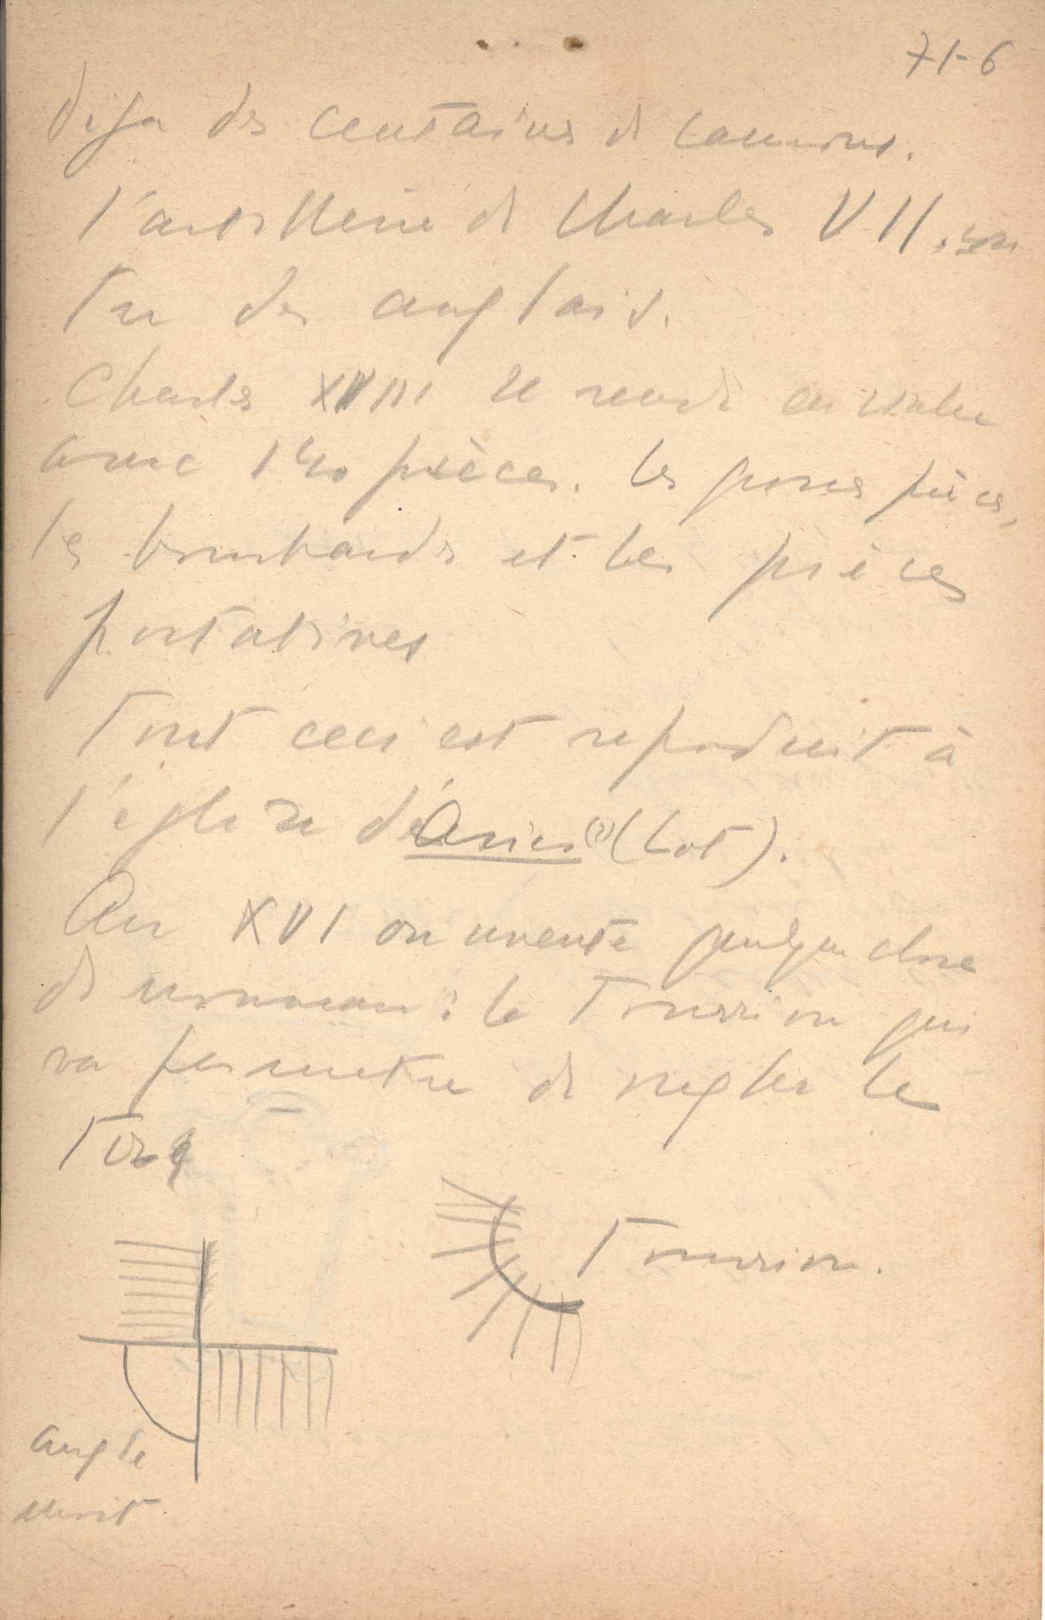 71-6
déja des centaines de canons.
l'artillerie de Charles VII, con
tre des anglais.
Charles XVIII se rend en italie
avec 140 pièces. les grosses pièces,
les bombardes et les pièces
portatives
Tout ceci est reproduit à
l'église d'Assier (?) (Lot).
Au XVI on invente quelque chose
de nouveau : le Tourrion qui
va permettre de regler le
Tir
Tourrion.
angle
mort